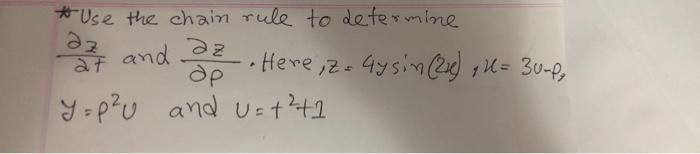 * Use the chain rule to determine
∂z/∂t and ∂z/∂p . Here, z = 4y sin(2x), x = 3u-p,
y = p²u and u = t²+1